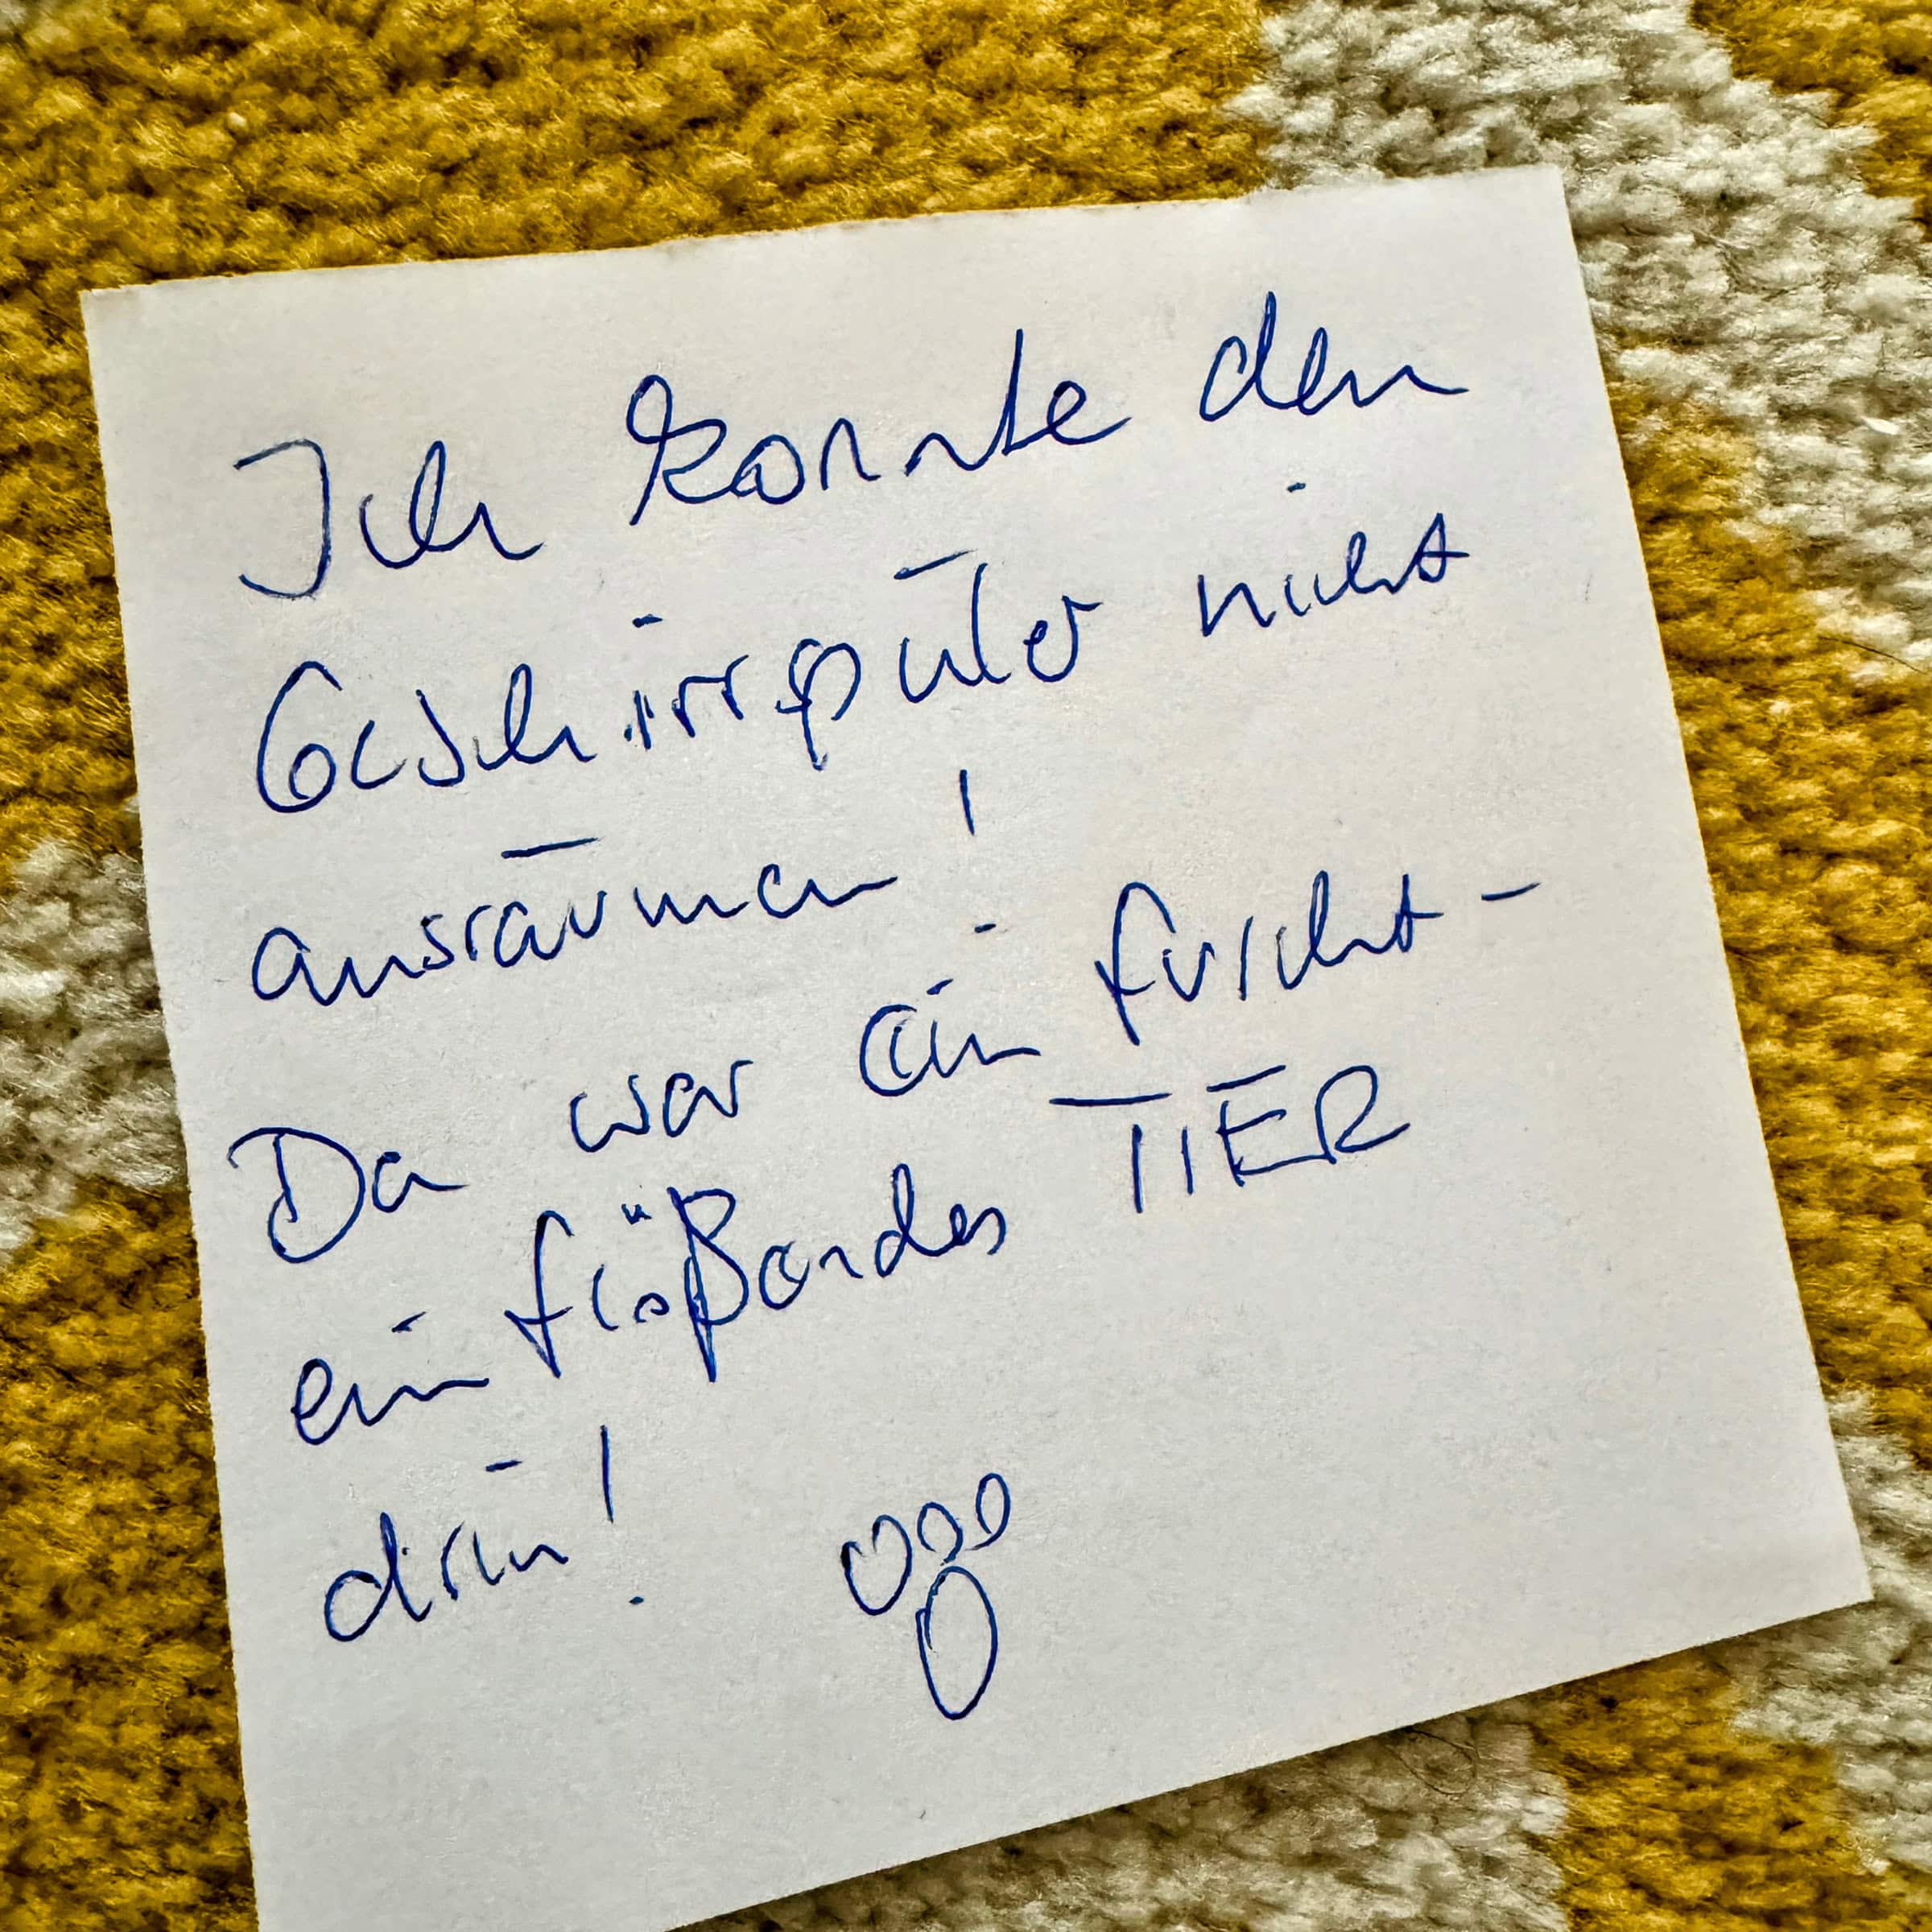 Ich konnte den
Geschirrspüler nicht
ausräumen!
Da war ein furcht-
einflößendes TIER
drin!